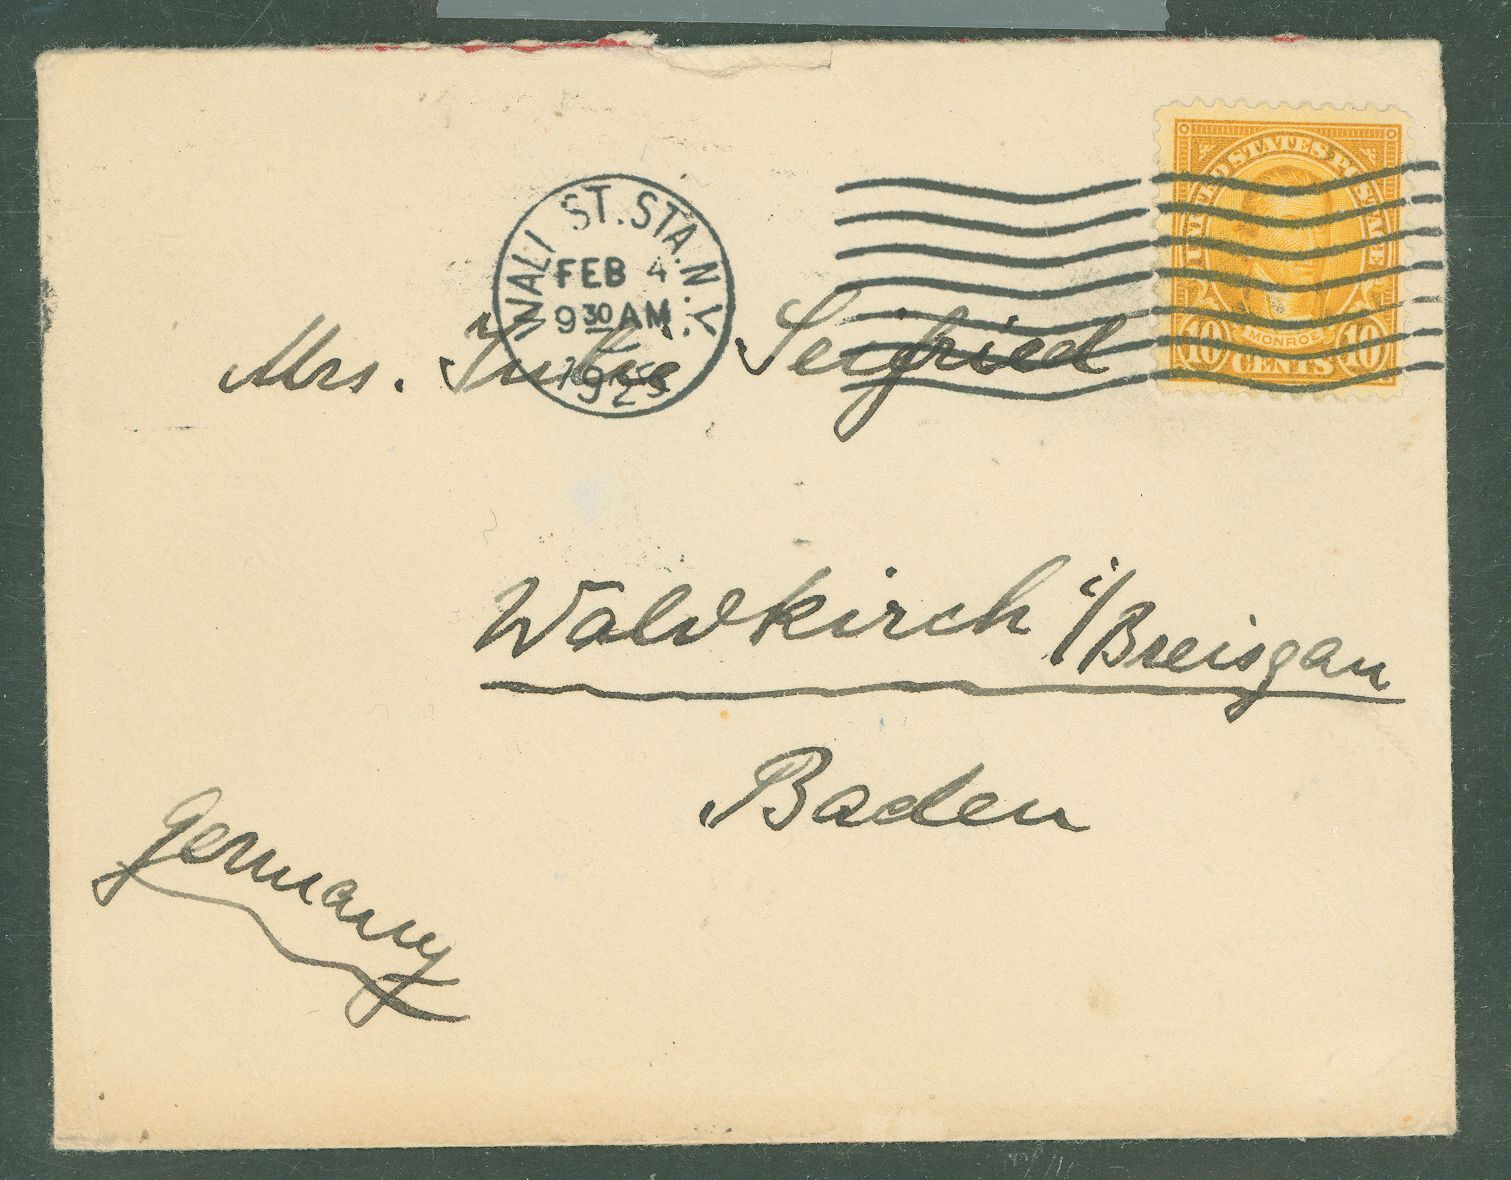 WALL ST. STA. N.Y.
FEB 4
9 30 AM
1925
UNITED STATES POSTAGE
MONROE
10 CENTS 10
Mrs. Seifried
Waldkirch i/Breisgau
Baden
Germany